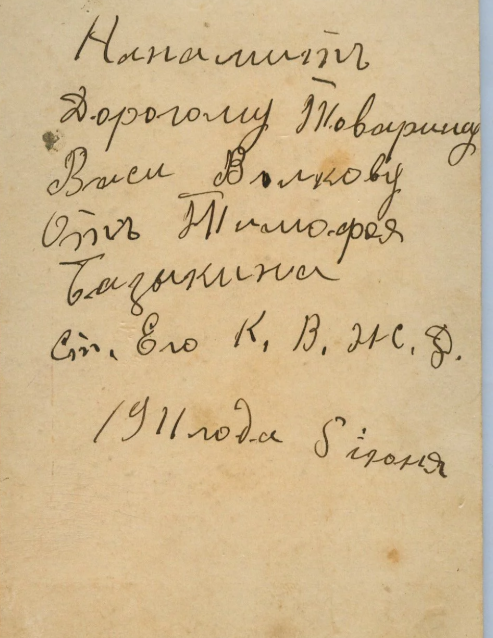 Нанамить
Дорогому Товарищу
Васи Волкову
Отъ Тимофея
Базыкина
ст. Ехо К. В. Ж. Д.
1911 года 5 іюня